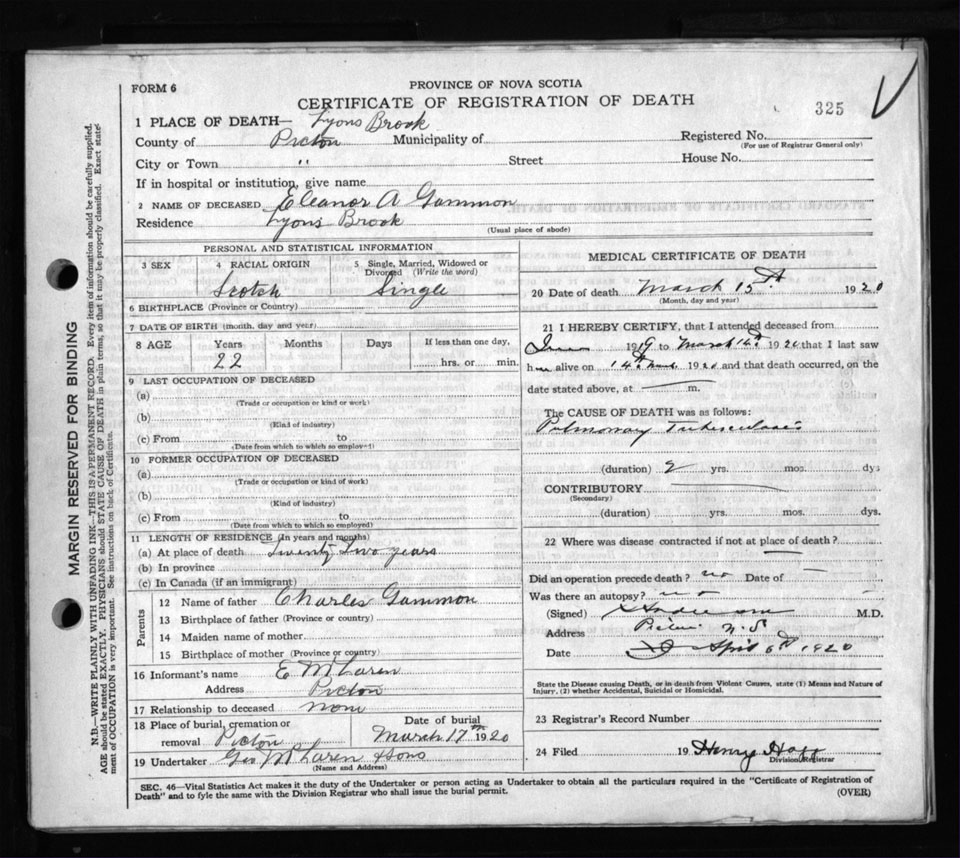 FORM 6
PROVINCE OF NOVA SCOTIA
CERTIFICATE OF REGISTRATION OF DEATH
325
1 PLACE OF DEATH— Lyons Brook
County of Pictou Municipality of Registered No.
(For use of Registrar General only)
City or Town " Street House No.
If in hospital or institution, give name
2 NAME OF DECEASED Eleanor A Gammon
Residence Lyons Brook
(Usual place of abode)
PERSONAL AND STATISTICAL INFORMATION
3 SEX 4 RACIAL ORIGIN 5 Single, Married, Widowed or Divorced (Write the word)
Scotch Single
6 BIRTHPLACE (Province or Country)
7 DATE OF BIRTH (month, day and year)
8 AGE Years Months Days If less than one day,
22 hrs. or min.
9 LAST OCCUPATION OF DECEASED
(a)
(Trade or occupation or kind or work)
(b)
(Kind of industry)
(c) From to
(Date from which to which so employed)
10 FORMER OCCUPATION OF DECEASED
(a)
(Trade or occupation or kind of work)
(b)
(Kind of industry)
(c) From to
(Date from which to which so employed)
11 LENGTH OF RESIDENCE (In years and months)
(a) At place of death Twenty Two years
(b) In province
(c) In Canada (if an immigrant)
Parents
12 Name of father Charles Gammon
13 Birthplace of father (Province or country)
14 Maiden name of mother
15 Birthplace of mother (Province or country)
16 Informant's name E McLaren
Address Pictou
17 Relationship to deceased none
18 Place of burial, cremation or removal Pictou Date of burial March 17th 1920
19 Undertaker Geo McLaren & Sons
(Name and Address)
MEDICAL CERTIFICATE OF DEATH
20 Date of death March 15th 1920
(Month, day and year)
21 I HEREBY CERTIFY, that I attended deceased from
1919 to March 14th 1920 that I last saw
h alive on 14th 1920 and that death occurred, on the
date stated above, at — m.
The CAUSE OF DEATH was as follows:
Pulmonary Tuberculosis
(duration) 2 yrs. mos. dys
CONTRIBUTORY
(Secondary)
(duration) yrs. mos. dys.
22 Where was disease contracted if not at place of death?
—
Did an operation precede death? no Date of —
Was there an autopsy? no —
(Signed) M.D.
Address Pictou N.S
Date April 6th 1920
State the Disease causing Death, or in death from Violent Causes, state (1) Means and Nature of
Injury, (2) whether Accidental, Suicidal or Homicidal.
23 Registrar's Record Number
24 Filed 19 Henry
Division Registrar
SEC. 46—Vital Statistics Act makes it the duty of the Undertaker or person acting as Undertaker to obtain all the particulars required in the "Certificate of Registration of
Death" and to fyle the same with the Division Registrar who shall issue the burial permit. (OVER)
MARGIN RESERVED FOR BINDING
N.B.—WRITE PLAINLY WITH UNFADING INK—THIS IS A PERMANENT RECORD. Every item of information should be carefully supplied.
AGE should be stated EXACTLY. PHYSICIANS should STATE CAUSE OF DEATH in plain terms, so that it may be properly classified. Exact state-
ment of OCCUPATION is very important. See instructions on back of Certificate.